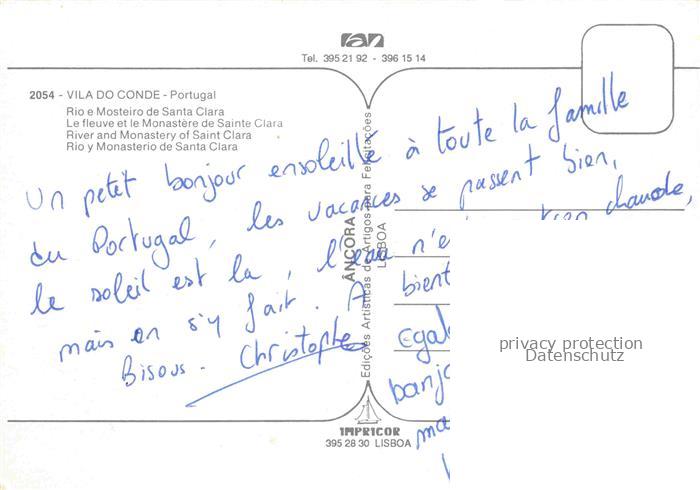 ran
Tel. 395 21 92 - 396 15 14
2054 - VILA DO CONDE - Portugal
Rio e Mosteiro de Santa Clara
Le fleuve et le Monastère de Sainte Clara
River and Monastery of Saint Clara
Rio y Monasterio de Santa Clara
Un petit bonjour ensoleillé à toute la famille
du Portugal, les vacances se passent bien,
le soleil est la, l'eau n'e chaude,
mais on s'y fait. A bient
Bisous. Christophe
Egal
bonjo
ma
ÂNCORA
Edições Artísticas de Artigos para Felicitações
LISBOA
IMPRICOR
395 28 30 LISBOA
privacy protection
Datenschutz